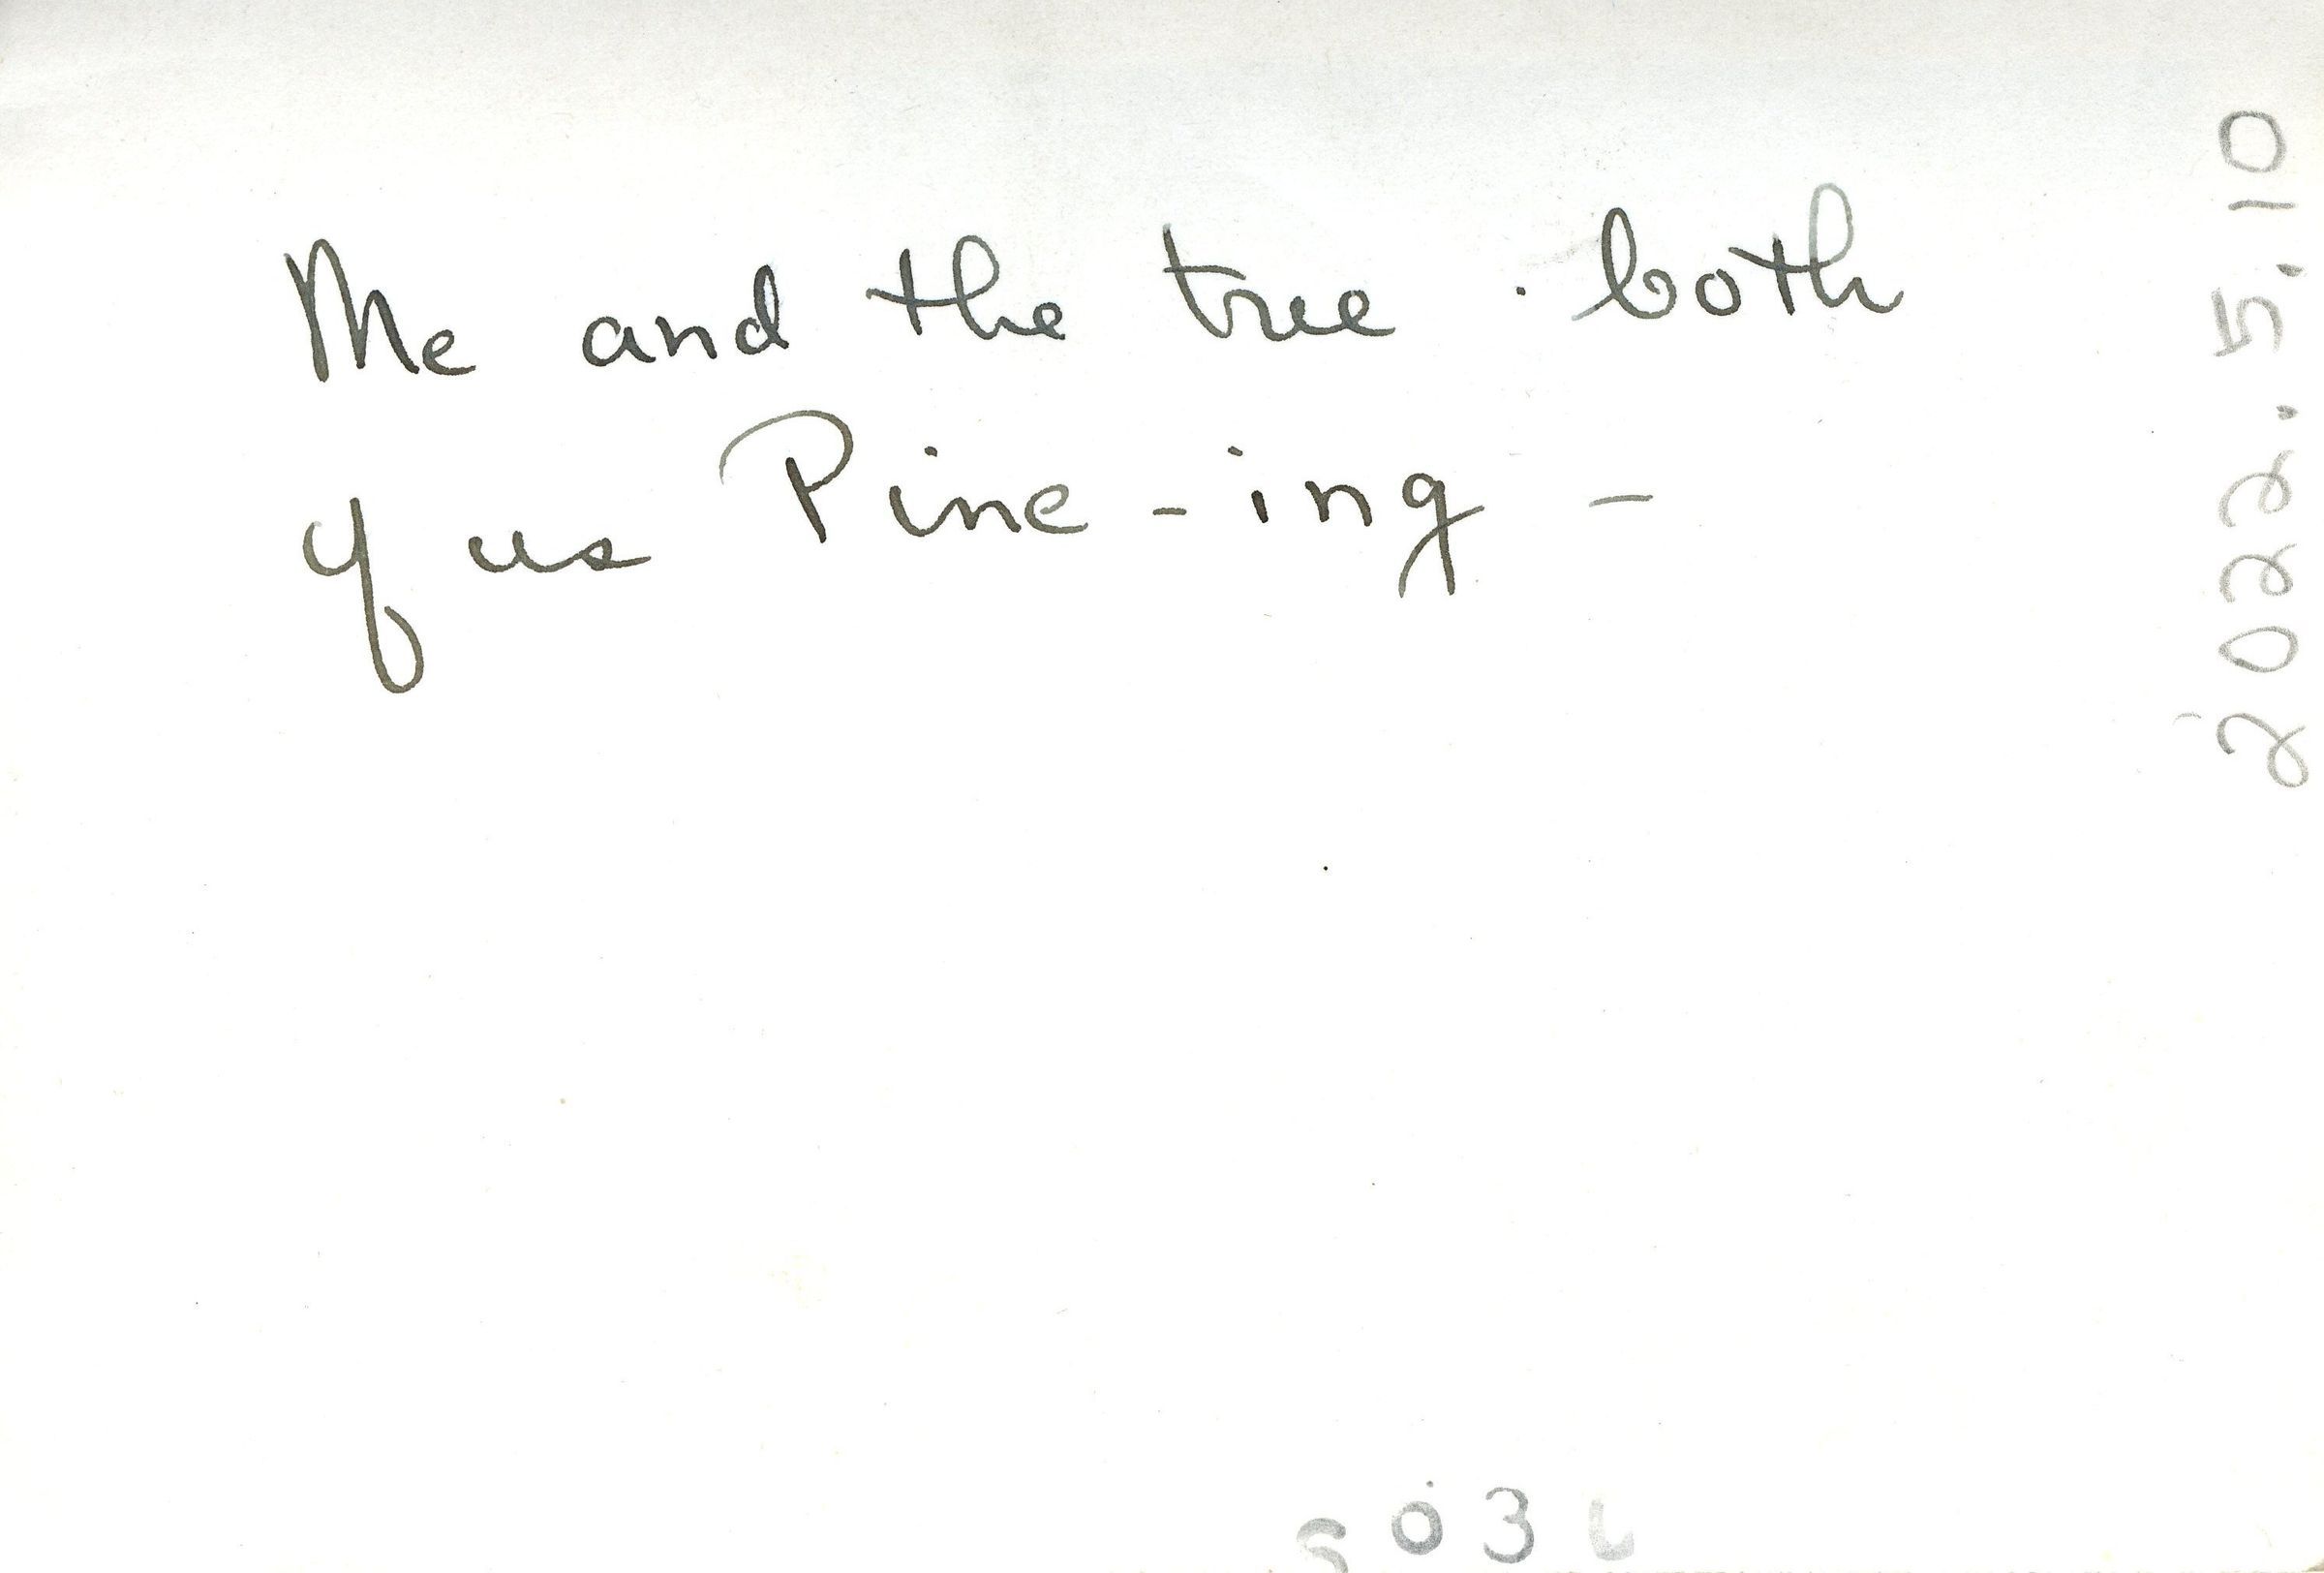 Me and the tree . both
of us Pine - ing -
2022.5.10